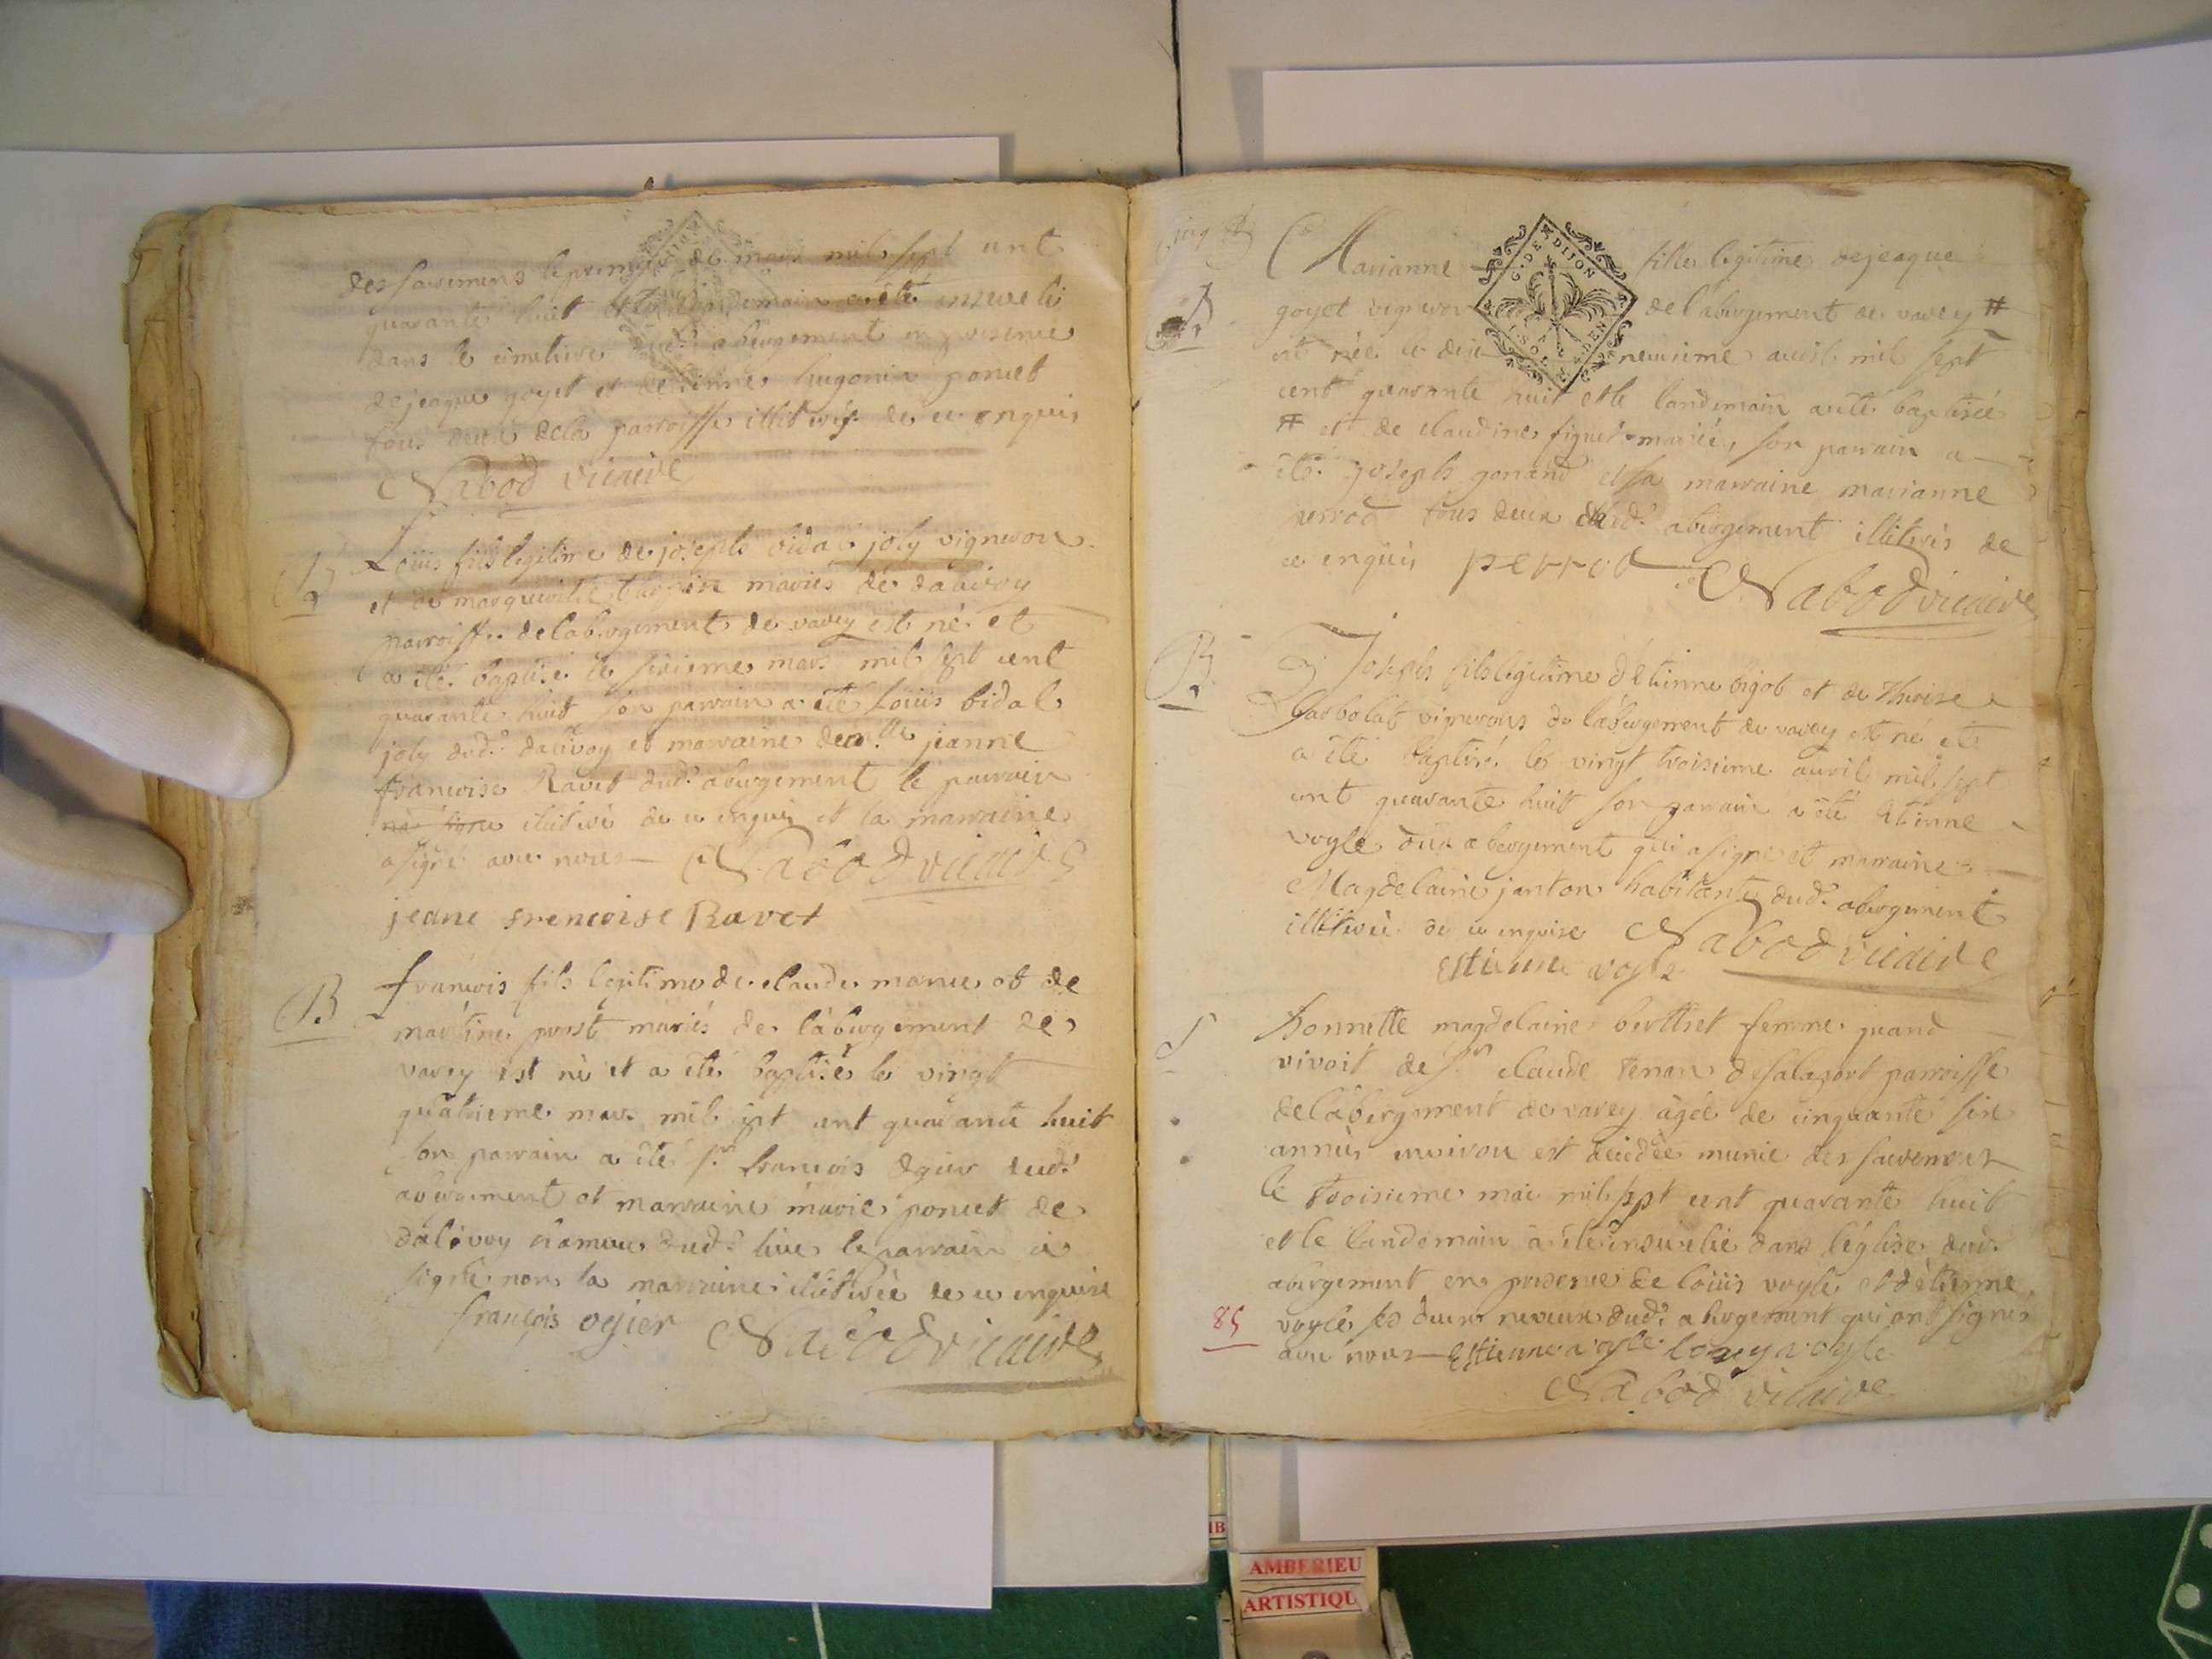 des sacremens le premier de mars mil sept cent
quarante huit et le lendemain a été enseveli
dans le cimetiere dud. abergement en presence
de jeaque goyet et de etienne hugonin poncet
tous deux de la parroisse illiterés de ce enquis
Nabod vicaire
B
Louis fils legitime de joseph bidal joly vigneron
et de marguerite mariés de dalivoy
parroisse de labergement de varey est né et
a été baptisé le sixieme mars mil sept cent
quarante huit son parrain a été Louis bidal
joly dud. dalivoy et marraine demlle jeanne
francoise Ravet dud. abergement le parrain
illiteré de ce enquis et la marraine
a signé avec nous Nabod vicaire
jeane frencoise Ravet
B
francois fils legitime de claude manue et de
martine prost mariés de labergement de
varey est né et a été baptisé le vingt
quatrieme mars mil sept cent quarante huit
son parrain a été sr francois ogier dud.
abergement et marraine marie poncet de
dalivoy hameau dud. lieu le parrain a
signé non la marraine illiterée de ce enquise
françois ogier Nabod vicaire
Marianne fille legitime de jeaque
goyet vigneron de labergement de varey #
est née le dix neuvieme avril mil sept
cent quarante huit et le landemain a été baptisée
# et de claudine figuet mariés, son parrain a
été joseph gonand et sa marraine marianne
perrod tous deux dud. abergement illiterés de
ce enquis perrod Nabod vicaire
G. DE DIJON
B
Joseph fils legitime détienne bigot et de therese
barbolat vignerons de labergement de varey est né et
a été baptisé le vingt troisieme avril mil sept
cent quarante huit son parrain a été etienne
vogle dud abergement qui a signé et marraine
Magdelaine janton habitante dud. abergement
illiterée de ce enquise Nabod vicaire
Estienne vogle
S
honnette magdelaine berthet femme quand
vivoit de sr claude tenan de salaport parroisse
de labergement de varey agée de cinquante six
années environ est decedée munie des sacremens
le troisieme mai mil sept cent quarante huit
et le landemain a été ensevelie dans léglise dud.
abergement en presence de louis vogle et détienne
vogle ses deux neveux dud. abergement qui ont signés
85
avec nous Estienne vogle louy vogle
Nabod vicaire
AMBERIEU
ARTISTIQU